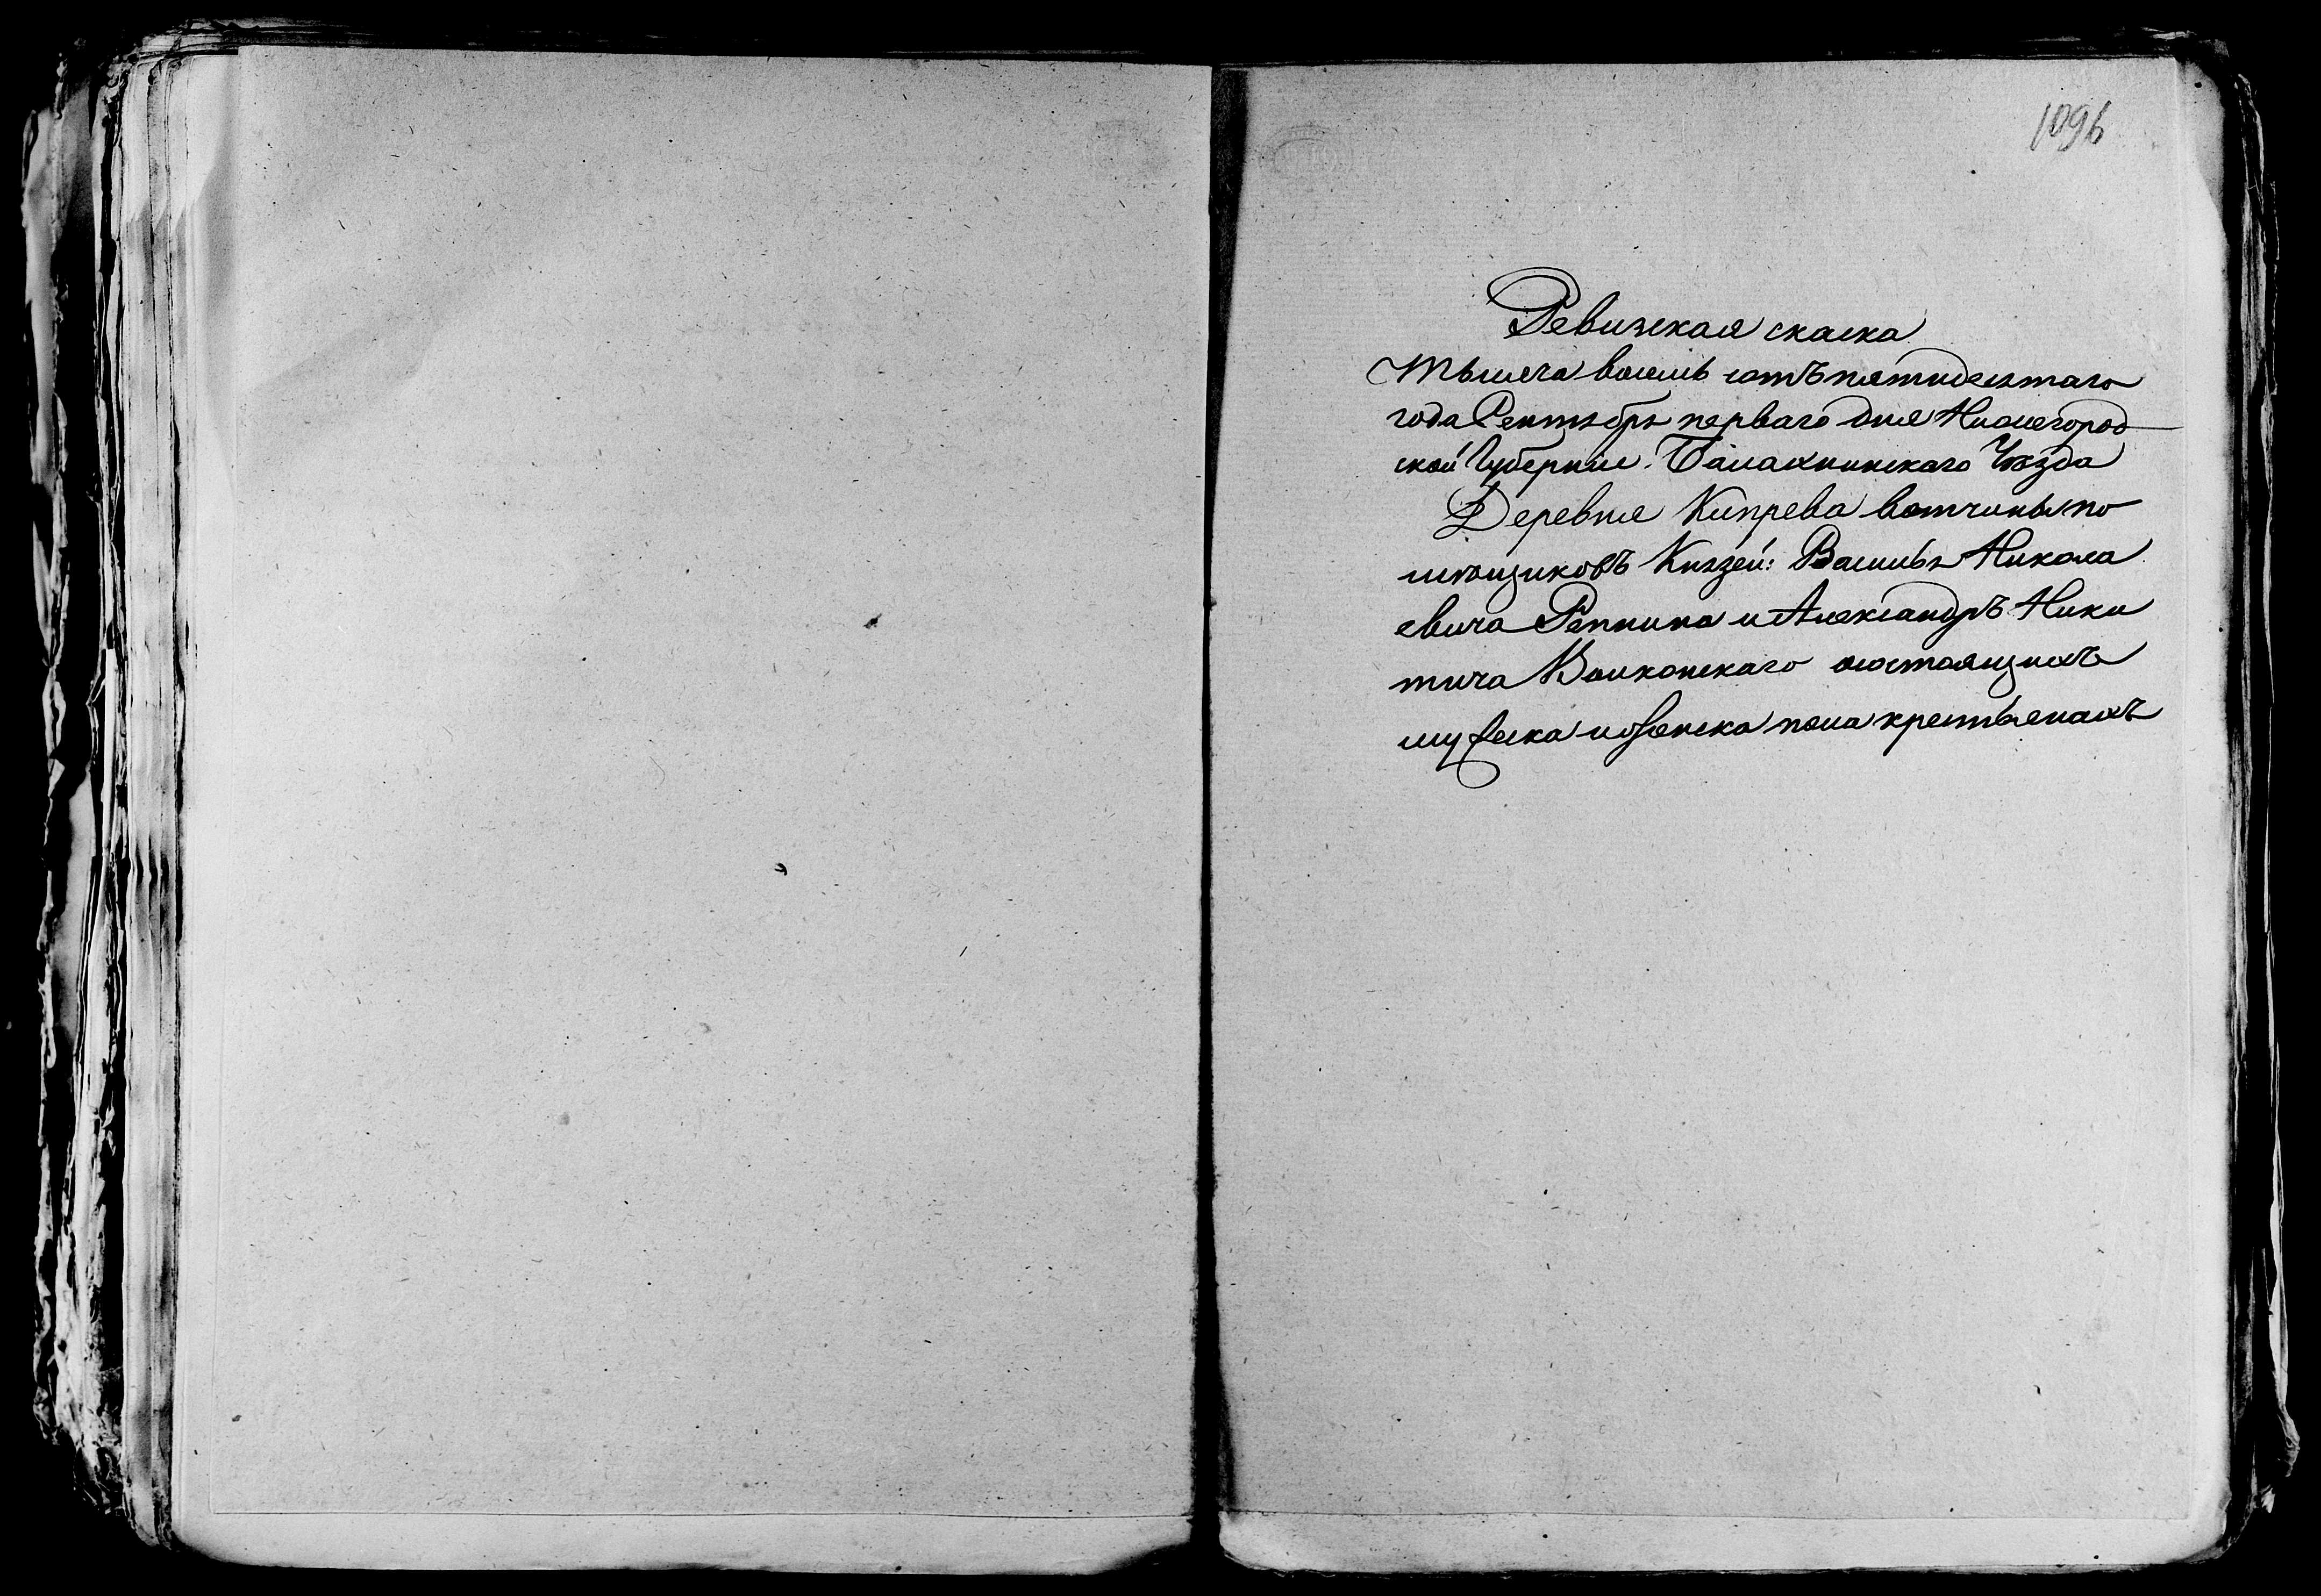 1096
Ревизская скаска
Тысеча восемь сотъ пятидесятаго
года Сентября перваго дня Нижегород
ской Губернии. Балахнинскаго Уѣзда
Деревни Кипрева вотчины по
мѣщиковъ Князей: Василья Никола
евича Репнина и Александръ Ники
тича Волконскаго осостоящихъ
мужеска и женска пола крестьянахъ